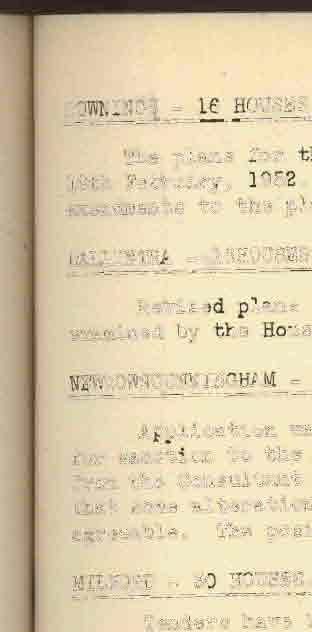 DOWNINGS - 16 HOUSES
The plans for th
19th February, 1952.
amendments to the pla
- HOUSES
Revised plans
examined by the Hous
NEWTOWNCUNNINGHAM -
Application wa
for sanction to the
from the Consultant
that some alteration
agreeable. The posi
MILFORD - 20 HOUSES.
Tenders have b